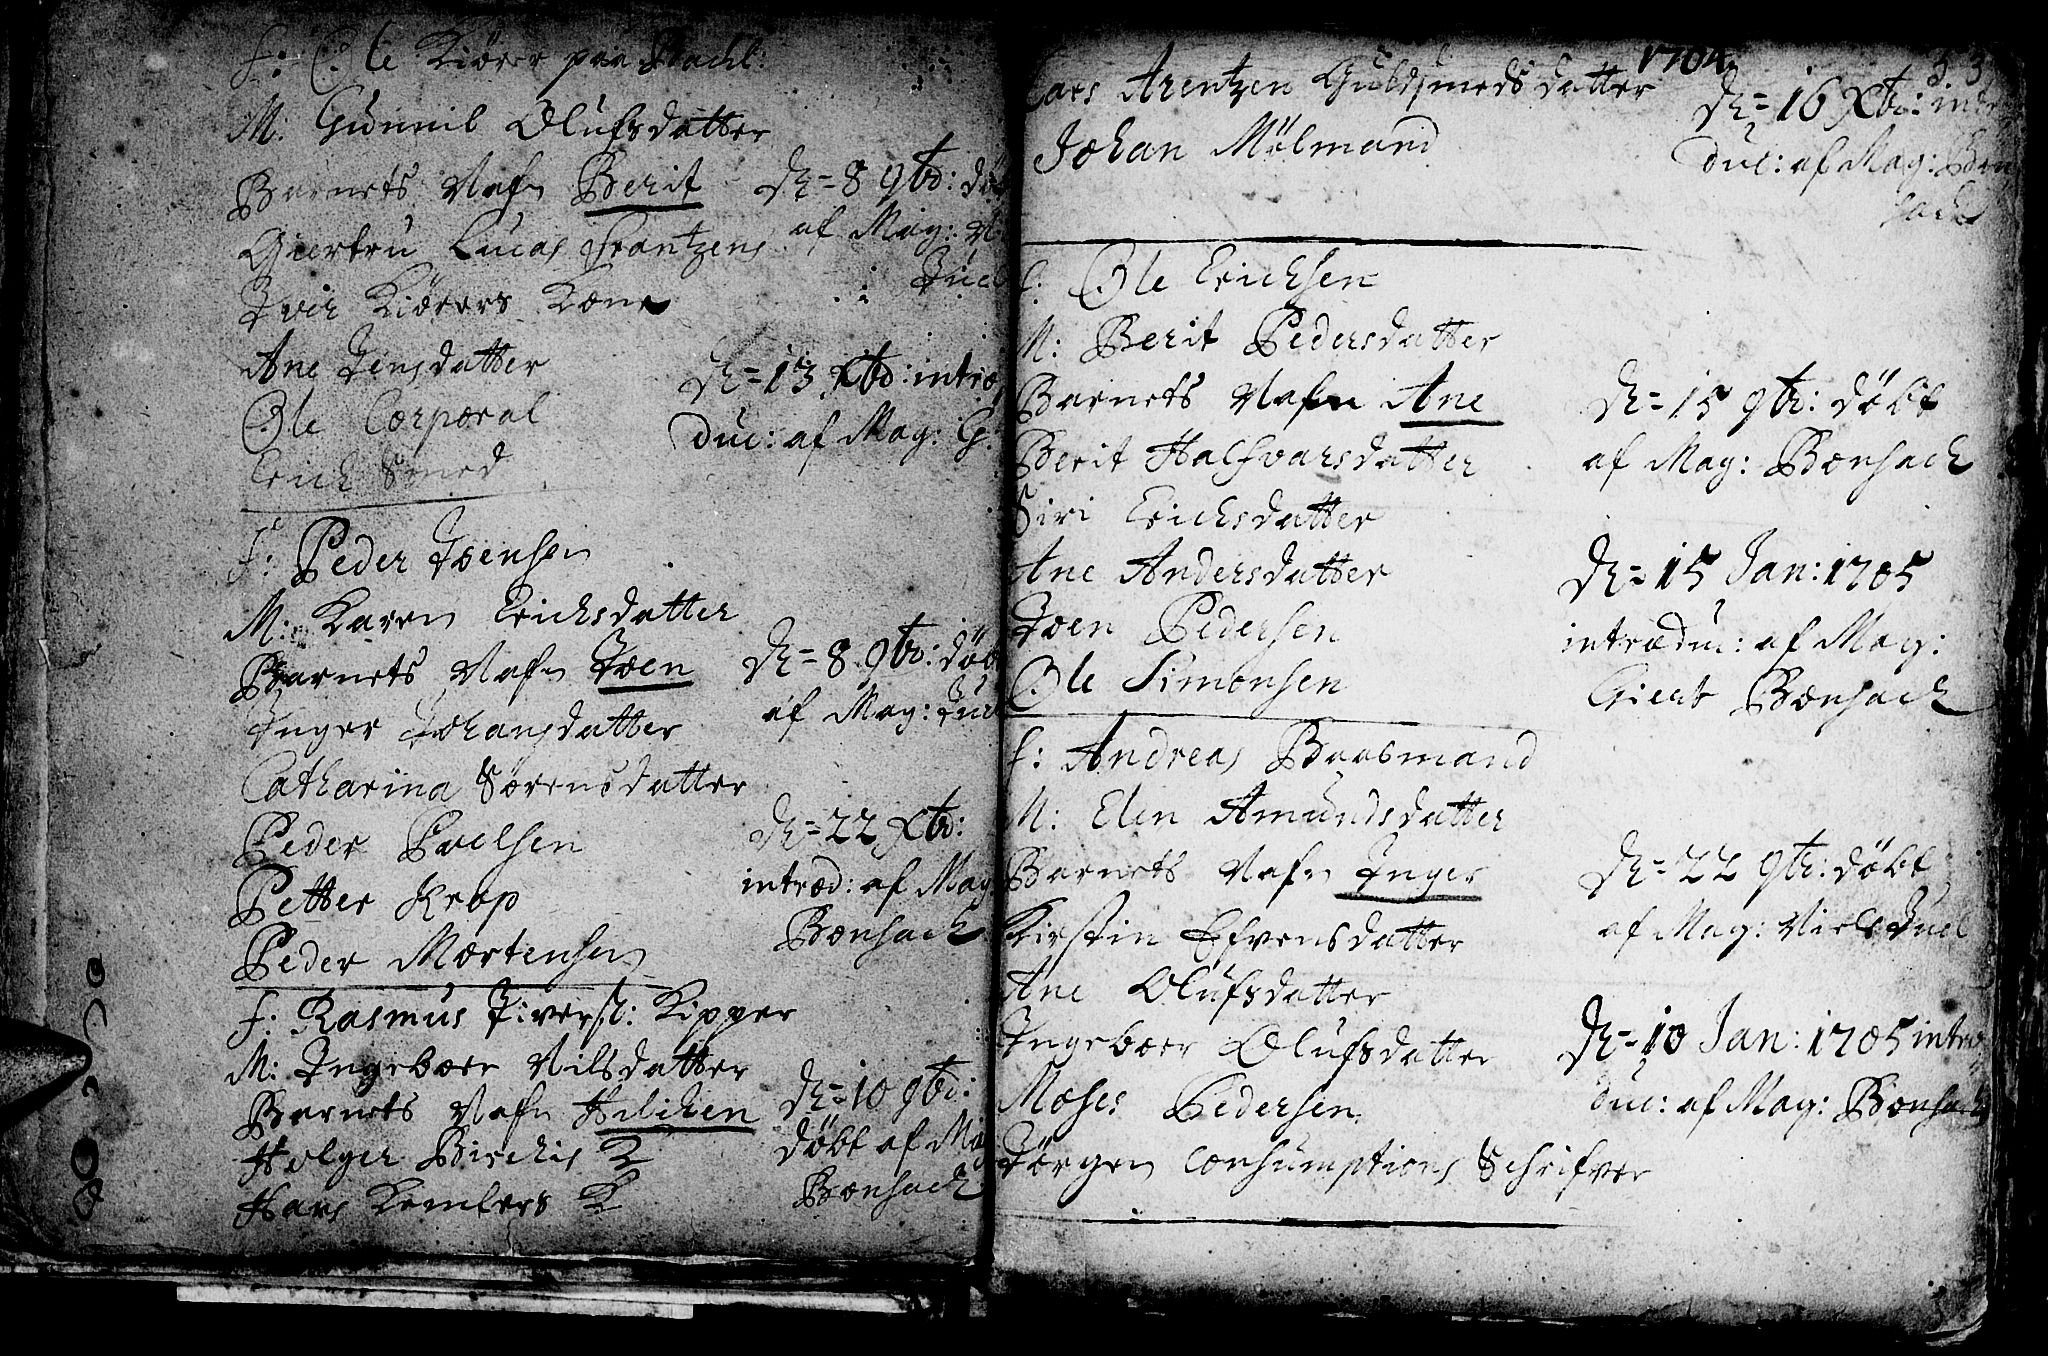 F: Ole Kiörer paa Bachl:
M: Gunnil Olufsdatter
Barnets Nafn Berit
Giertru Lucas Frantzens
Iver Kiörers Kone
Ane Jensdatter
Ole Corporal
Erich Smed
D= 8 9br: döb
af Mag: N
Juel
D= 13 Xbr: intro
duc: af Mag: G:
F: Peder Joensen
M: Karen Erichsdatter
Barnets Nafn Joen
Inger Johansdatter
Catharina Sörensdatter
Peder Poelsen
Petter Krop
Peder Mortensen
D= 8 9br: döb
af Mag: Juel
D= 22 Xbr:
introd: af Mag
Bonsach
F: Rasmus Iverss: Kipper
M: Ingeboer Nilsdatter
Barnets Nafn Hilchen
Holger
Hans
D= 10 9br:
döbt af Mag
Bonsach
1704
3. 3
Lars Arentzen Guldsmeds datter
Johan Mölmand
D= 16 Xbr: intro
duc: af Mag: Bon
sach
F: Ole Erichsen
M: Berit Pedersdatter
Barnets Nafn Ane
Berit Halfvarsdatter
Siri Erichsdatter
Ane Andersdatter
Joen Pedersen
Ole Simonsen
D= 15 9br: döbt
af Mag: Bonsach
D= 15 Jan: 1705
introduc: af Mag:
Giert Bonsach
F: Andreas Baasmand
M: Elin Amundsdatter
Barnets Nafn Inger
Kirstin Efvensdatter
Ane Olufsdatter
Ingeboer Olufsdatter
Moses Pedersen
Jörgen Consumptions Schrifver
D= 22 9br: döbt
af Mag: Niels Juel
D= 10 Jan: 1705 intro
duc: af Mag: Bonsach